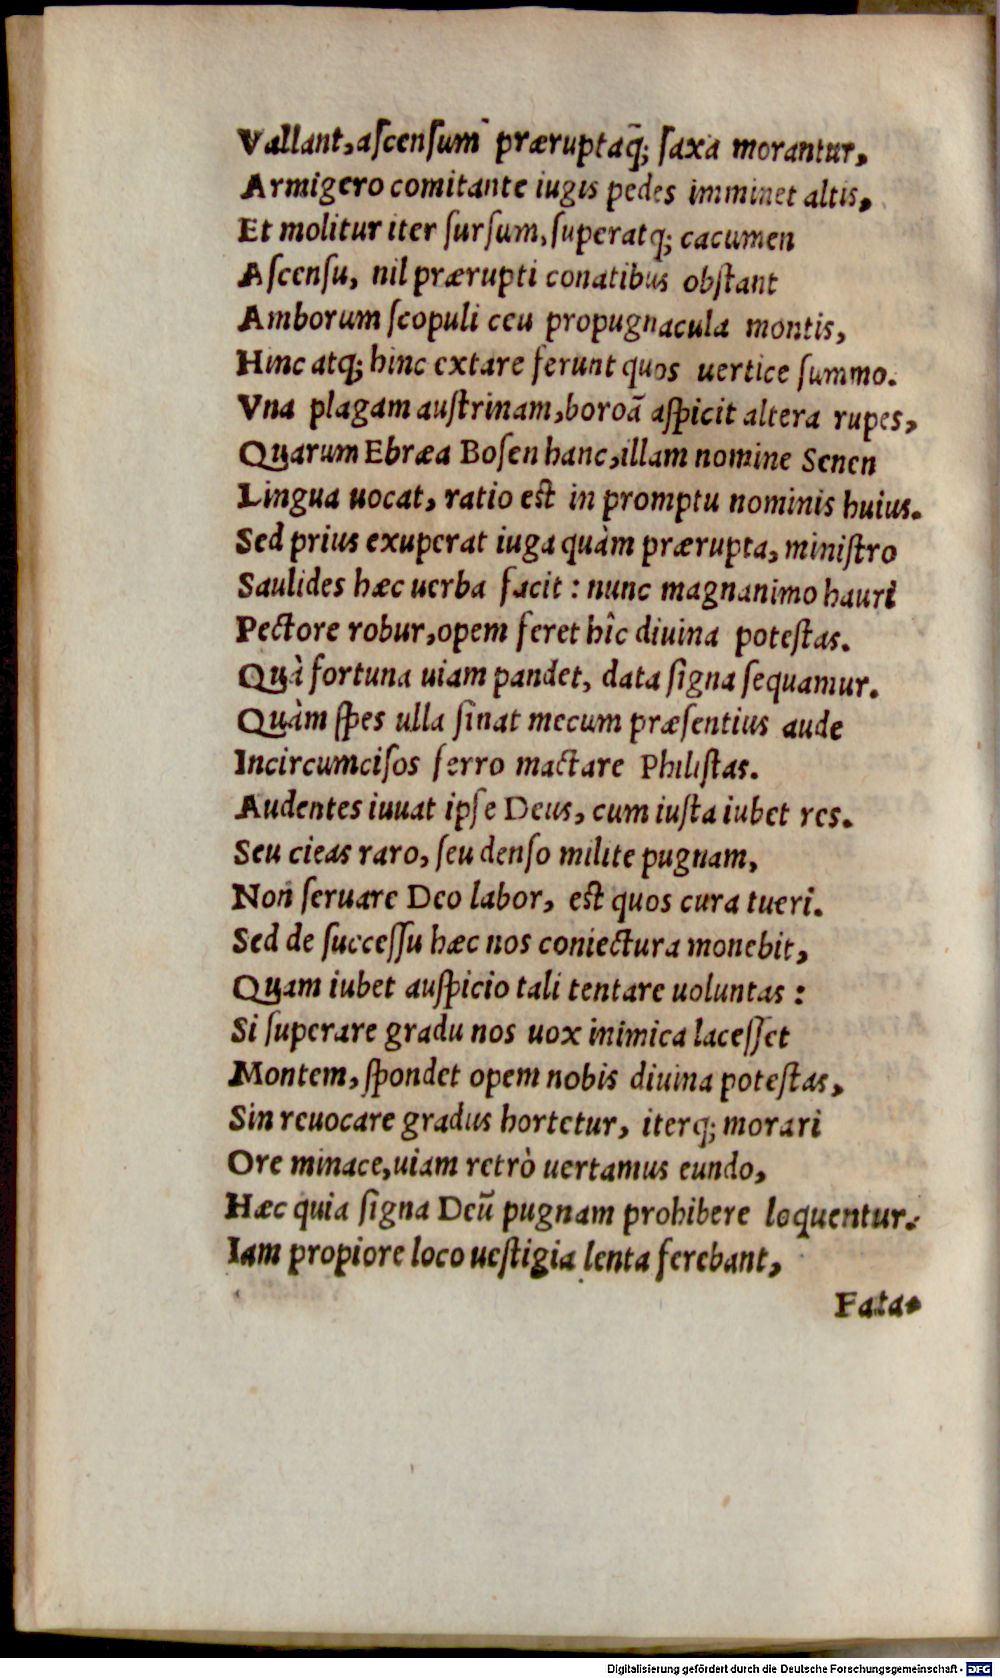 Vallant, aſcenſum præruptaq̃; ſaxa morantur,
Armigero comitante iugis pedes imminet altis,
Et molitur iter ſurſum, ſuperatq; cacumen
Aſcenſu, nil prærupti conatibus obſtant
Amborum ſcopuli ceu propugnacula montis,
Hinc atq; hinc extare ferunt quos uertice ſummo.
Vna plagam auſtrinam, boroã aſpicit altera rupes,
Quarum Ebræa Boſen hanc, illam nomine Senen
Lingua uocat, ratio eſt in promptu nominis huius.
Sed prius exuperat iuga quàm prærupta, miniſtro
Saulides hæc uerba facit : nunc magnanimo hauri
Pectore robur, opem feret hîc diuina poteſtas.
Quà fortuna uiam pandet, data ſigna ſequamur.
Quàm ſpes ulla ſinat mecum præſentius aude
Incircumciſos ferro mactare Philiſtas.
Audentes iuuat ipſe Deus, cum iuſta iubet res.
Seu cieas raro, ſeu denſo milite pugnam,
Non ſeruare Deo labor, eſt quos cura tueri.
Sed de ſucceſſu hæc nos coniectura monebit,
Quam iubet auſpicio tali tentare uoluntas :
Si ſuperare gradu nos uox inimica laceſſet
Montem, ſpondet opem nobis diuina poteſtas,
Sin reuocare gradus hortetur, iterq; morari
Ore minace, uiam retrò uertamus eundo,
Hæc quia ſigna Deũ pugnam prohibere loquentur.
Iam propiore loco ueſtigia lenta ferebant,
Fata-
Digitalisierung gefördert durch die Deutsche Forschungsgemeinschaft - DFG